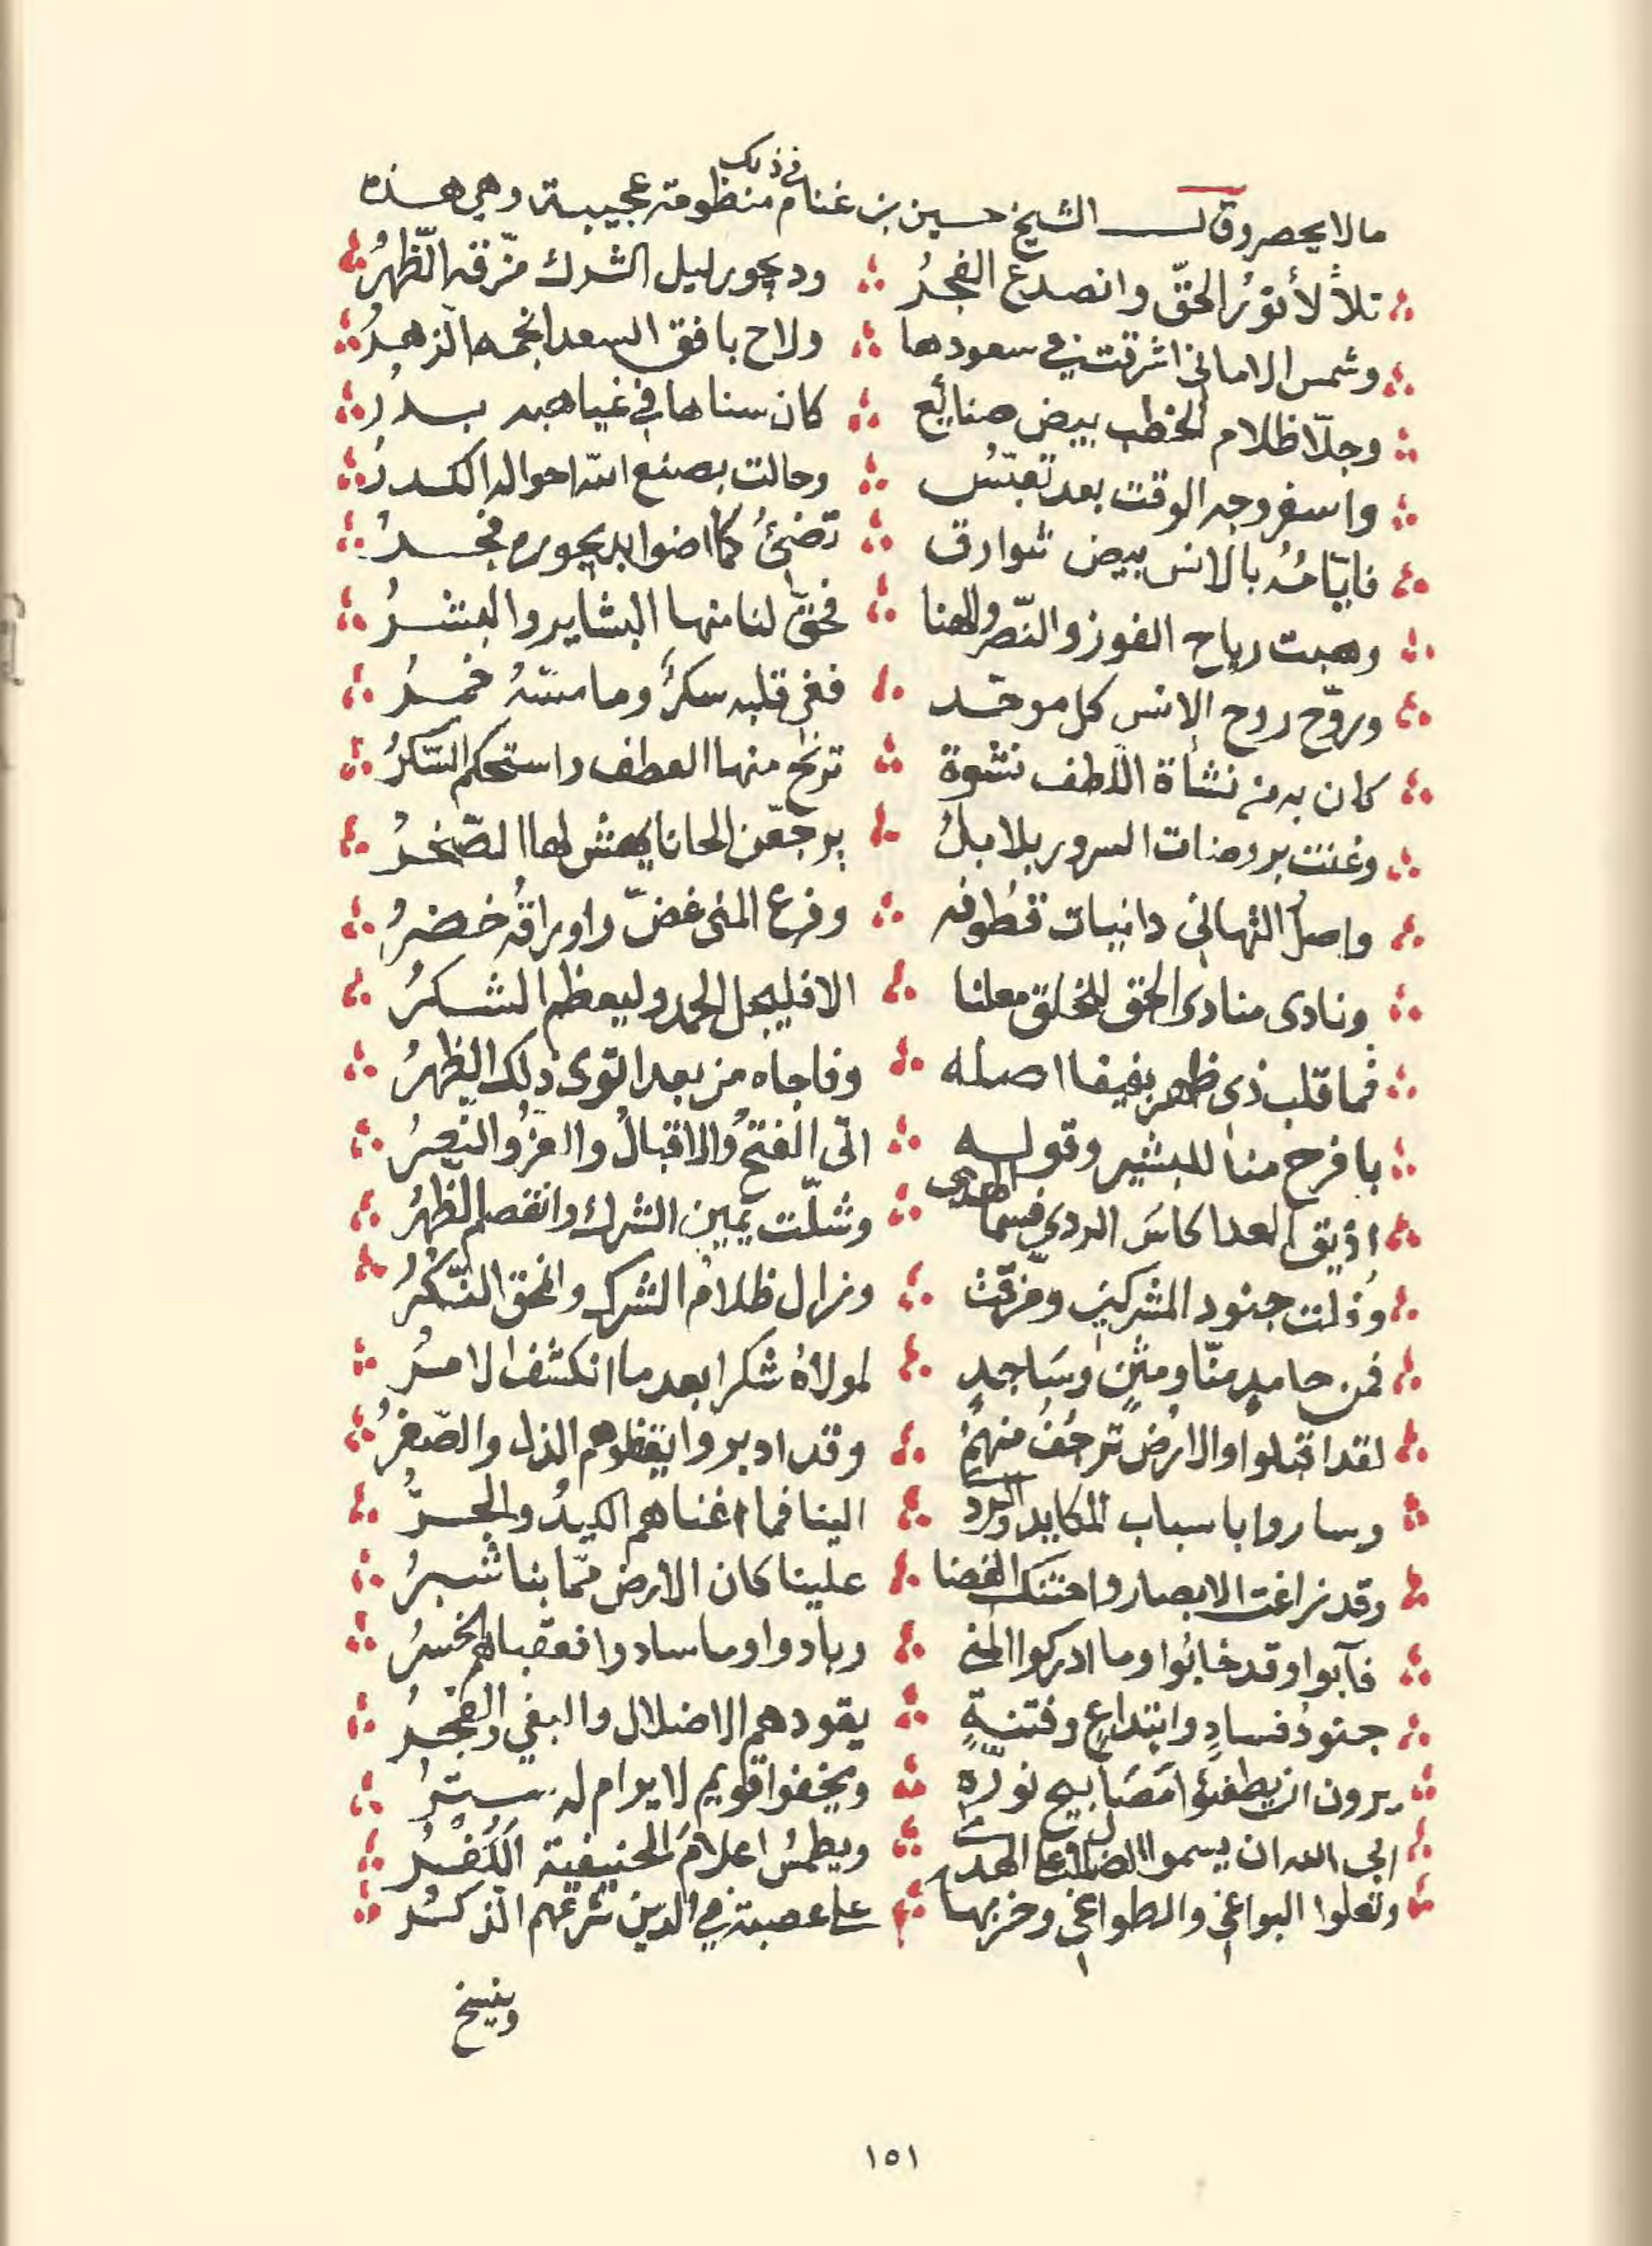 مالا يحصر وقال الشيخ حسين بن غنام في ذلك منظومة عجيبة وهي هذه
تلاْلأ نوُر الحقّ وانصدع الفجرُ ودیجور ليل الشرك مزّقه الظّهرُ
وشمس الاماني اشرقت في سعودها ولاح بافق السعد انجمها الزهرُ
وجلّا ظلام الخطب بيض صنائع كان سناها في غياهبه بدرُ
واسفر وجه الوقت بعد تعبّسُ وحالت بصنع الله احواله الكدرُ
فايّامُه بالانس بيض شوارق تضئُ كما اضوا بديجوره فجرُ
وهبت رياح الفوز والنّصر والهنا فحقّ لنا منها البشاير والبشرُ
وروّح روح الانس كل موحّد ففي قلبه سكرُ وما مسّهُ خمرُ
كان به من نشأة اللّطف نشوة ترنح منها العطف واستحكم السّكرُ
وغنت بروضات السرور بلابلُ يرجّعن الحانا يهش لها الصّخرُ
واصلُ التهاني دانيات قطُوفه وفرع المنى غضّ واوراقُه خضرُ
ونادى منادى الحق للخلق معلنا الا فليجل الحمد وليعظم الشكرُ
فما قلب ذي ظعن بفيفا اضله وفاجاه من بعد التوى ذلك الظهرُ
بافرح منا للبشير وقوله اتى الفتحُ والاقبالُ والعزُ والنّصرُ
اذيق العدا كاسَ الردي فسما الهدى وشلّت يمين الشرك وانقصم الظهرُ
وذلت جنود المشركين ومزقت وزال ظلامُ الشرك وانمحق النّكرُ
فمن حامدٍ منّا ومثنٍ وسَاجدٍ لمولاهُ شكرا بعد ما انكشف الامرُ
لقد اقبلوا والارض ترجُفُ منهمُ وقد ادبروا يقظوهم الذل والصّغرُ
وساروا باسباب المكايد والردى الينا فما اغناهم الكيدُ والجرُّ
وقد زاغت الابصار واحتنك الفضا علينا كان الارض ممّا بنا شبرُ
فآبوا وقد خابُوا وما ادركوا المنى وبادوا وما سادوا فعقباهم الخسرُ
جنودُ فسادٍ وابتداعٍ وفتنةٍ يقودهم الاضلال والبغي والفجرُ
يرون ان يطفئوا مَصَابيح نوره ويخفوا قويم لا يرام له سترُ
ابى الله ان يسموا الضلال على الهدى ويطمسُ اعلامَ الحنيفية الكُفْرُ
وتعلوا البواغي والطواغي وحزبها على عصبة في الدين شرعهم الذكرُ
وينسخ
١٥١